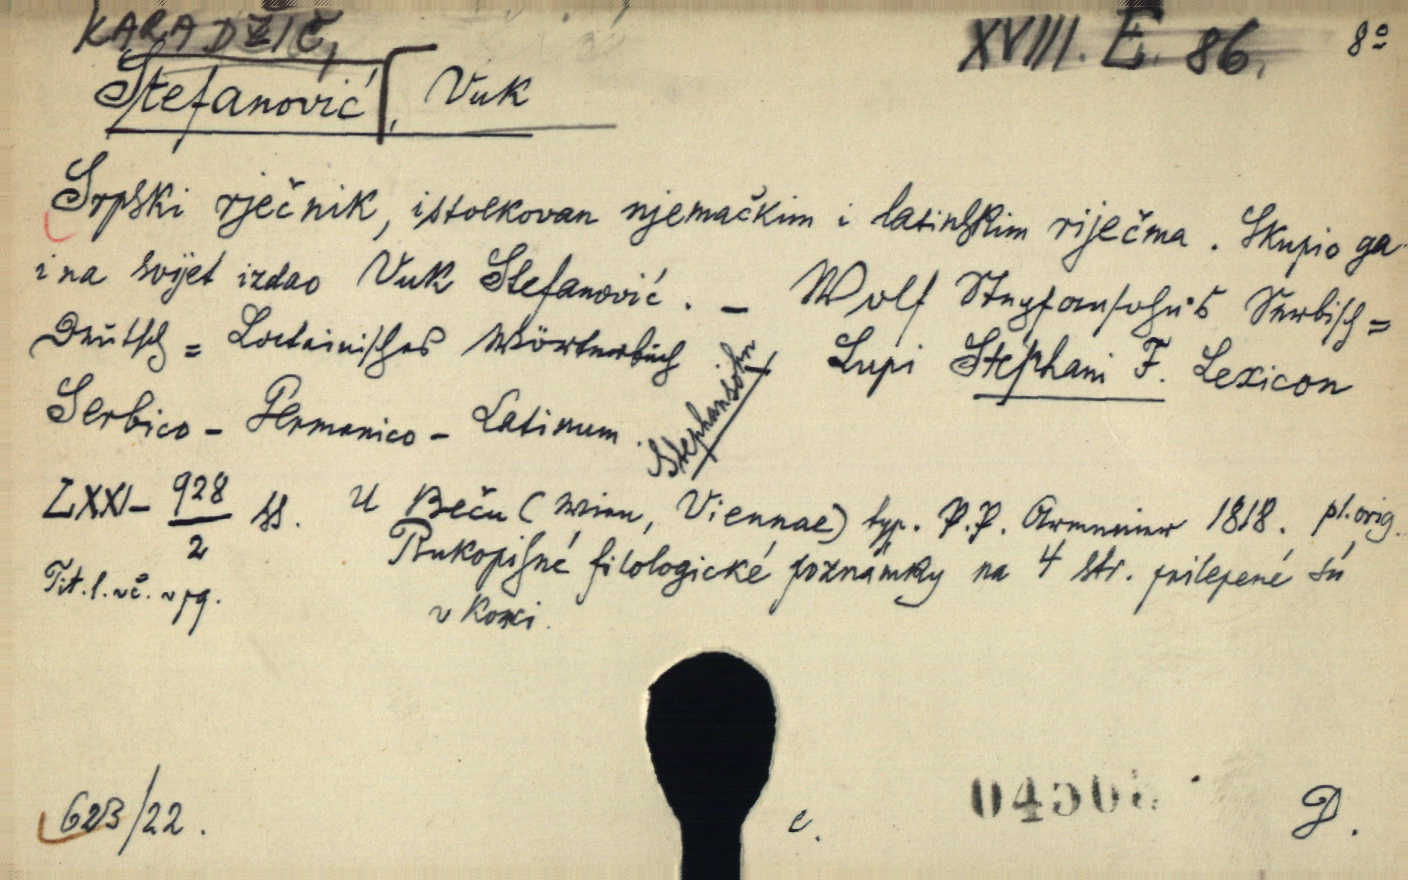 KARADŽIČ,
XVIII. E. 86. 8º
Stefanović, Vuk
Srpski rječnik, istolkovan njemačkim i latinskim riječma. Skupio ga
i na svijet izdao Vuk Stefanović. – Wolf Stephansohn's Serbisch =
Deutsch = Lateinisches Wörterbuch Lupi Stephani F. Lexicon
Stephansohn
Serbico – Germanico – Latinum.
LXXI – 928/2 ss. U Beču (Wien, Viennae) typ. P.P. Armenier 1818. pl. orig.
Rukopisné filologické poznámky na 4 str. prilepené sú
Tit. l.
v
623/22.
c.
D.